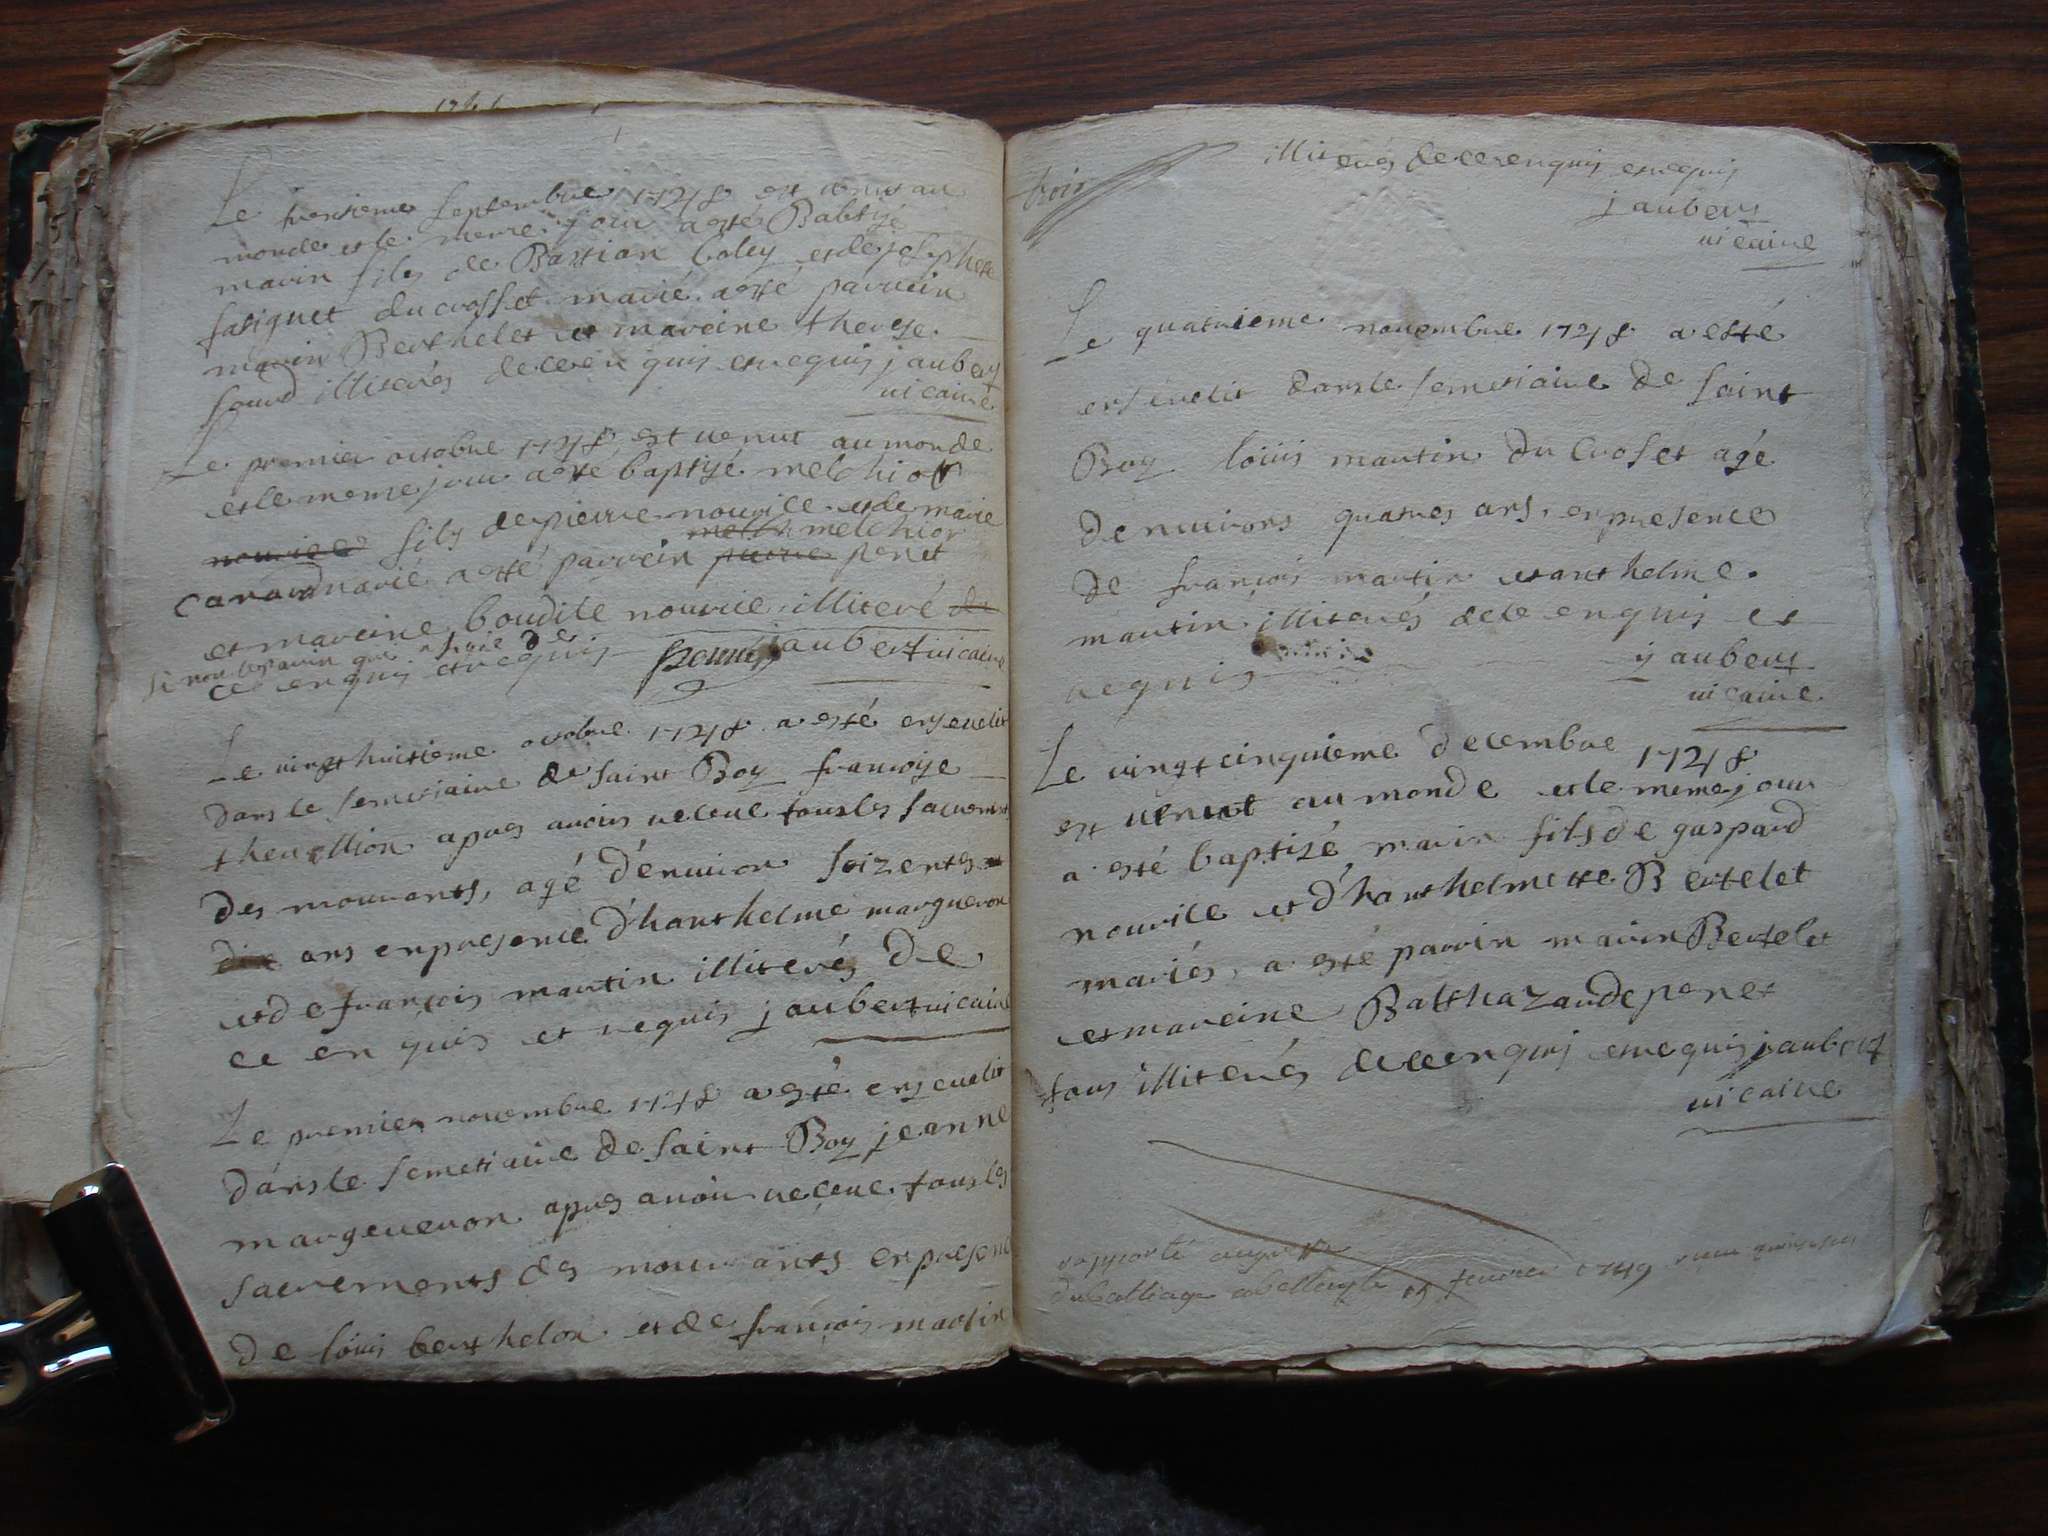 Le trensieme septembre 1748 est venus au
monde et le meme jour a esté Babtisé
marin fils de Bastian Coley et de josephete
fatiguet du crosset marié a esté parrein
marin Berthelet et mareine therese
sourd illiterés de ce enquis et requis jaubert
vicaire
Le premier octobre 1748 est venut au monde
et le meme jour a esté baptisé melchior
fils de pierre nourice et de marie
melchior
canard marié a esté parrein penet
et mareine boudile nourice illiteré
si non le parrin qui a signé de
ce enquis et requis jaubert vicaire
Le vingt huitieme octobre 1748 a esté ensevelit
dans le semetiaire de saint Boy françoise
thevellion apres avoir receue tous les sacrements
des mourants, agé d'environ soizente
ans en presence d'hanthelme margueron
et de françois martin illiterés de
ce enquis et requis jaubert vicaire
Le premier novembre 1748 a esté ensevelit
dans le semetiaire de saint Boy jeanne
margeueron apres avoir receue tous les
sacrements des mourants en presence
de louis berthelon et de françois martin
trois
illiterés de ce enquis et requis
jaubert
vicaire
Le quatrieme novembre 1748 a esté
ensevelit dans le semetiaire de saint
Boy louis martin du Croset agé
denvirons quatres ans, en presence
de françois martin et anthelme
martin illiterés de ce enquis et
requis
jaubert
vicaire
Le vingt cinquieme decembre 1748
est venut au monde et le meme jour
a esté baptisé marin fils de gaspard
nourice et d'hanthelmette Bertelet
mariés, a esté parrin marin Bertelet
et mareine Balthazande penet
tous illiterés de ce enquis et requis jaubert
vicaire
rapporté au greffe
du balliage a belley le 15 fevrier 1749